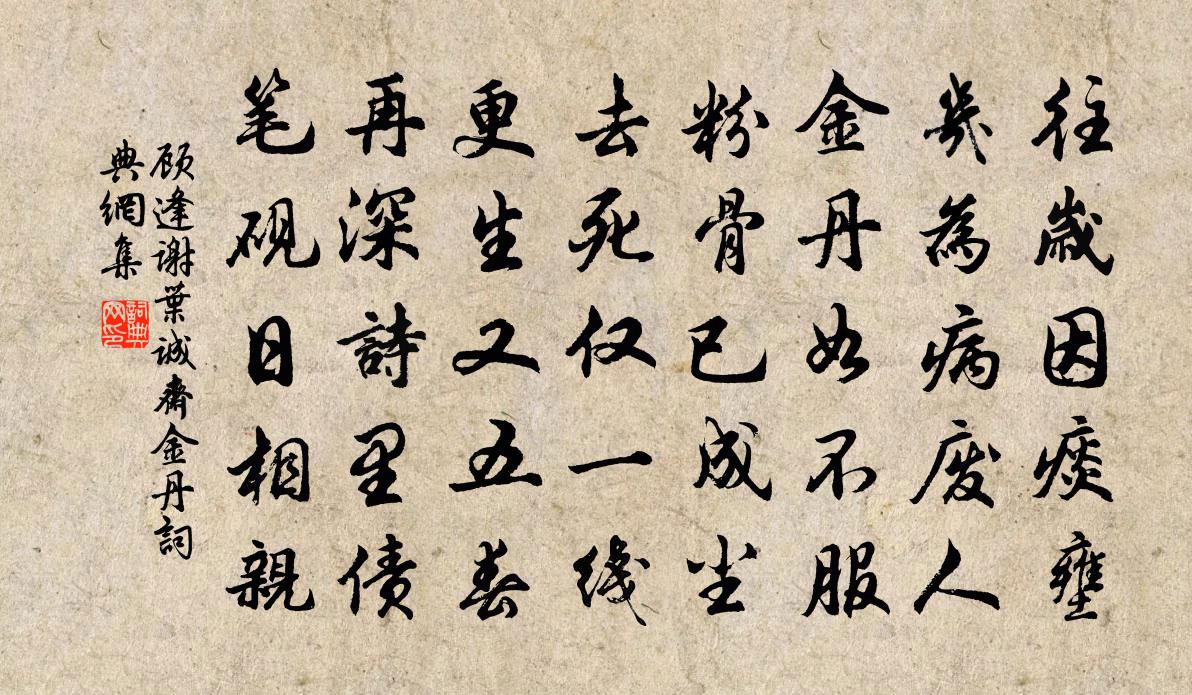 往歲因痰壅
幾為病废人
金丹如不服
粉骨已成尘
去死仅一线
更生又五春
再深詩里债
笔砚日相親
顾逢謝葉诚齋金丹詞
典網集
詞典网印